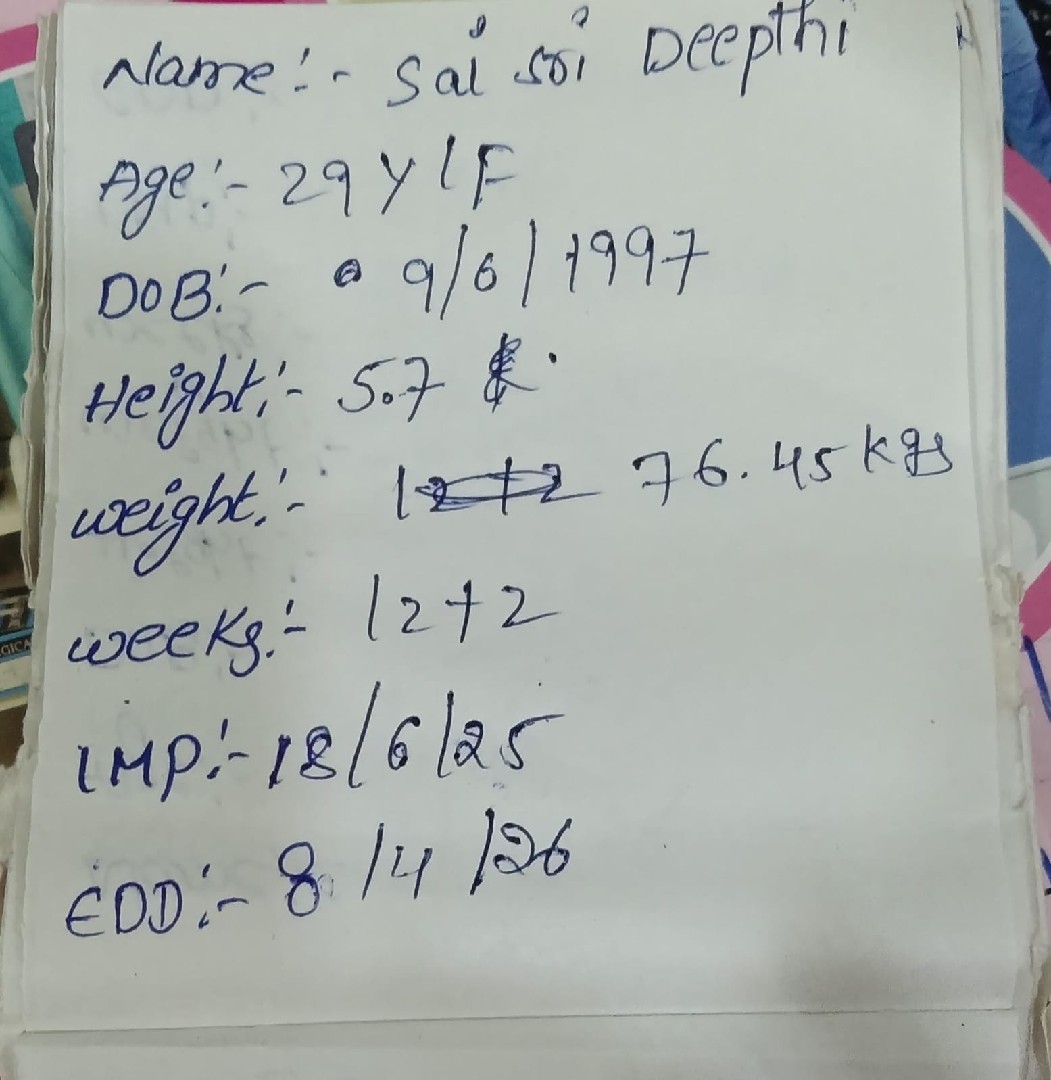 Name:- Sai Sri Deepthi
Age:- 29 Y/F
DOB:- 9/6/1997
Height:- 5.7
weight:- 76.45 kgs
weeks:- 12+2
LMP:- 18/6/25
EDD:- 8/4/26
GICA